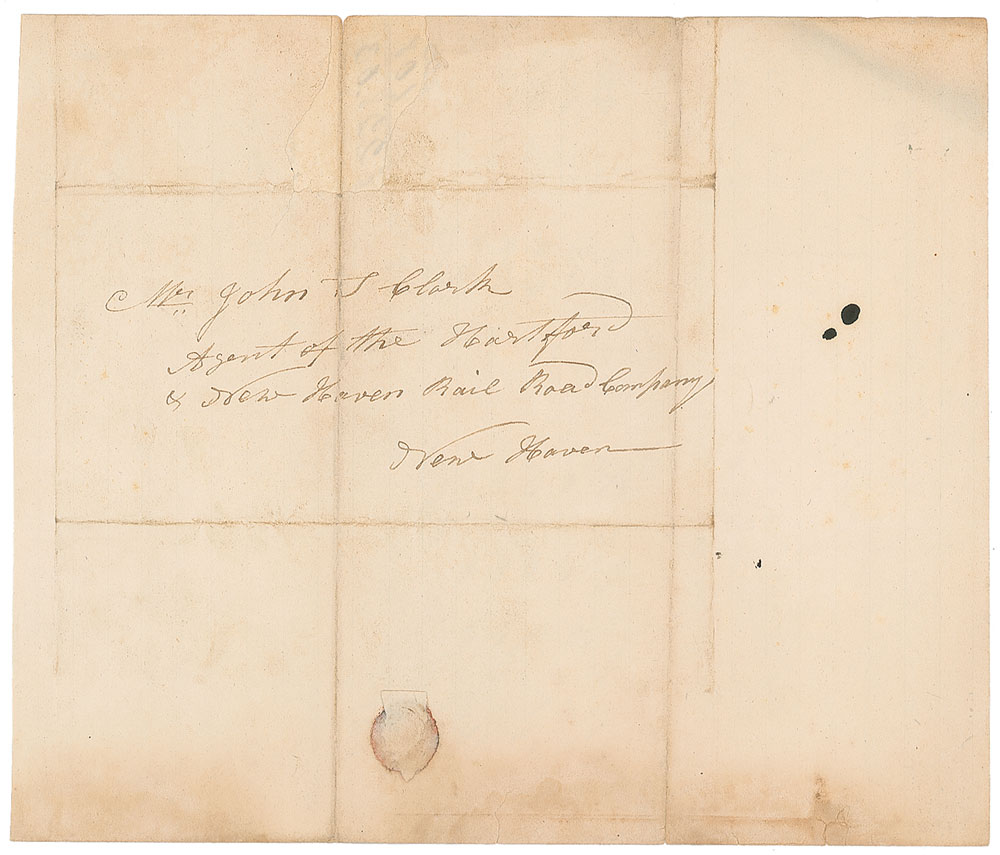 Mr. John S Clark
Agent of the Hartford
& New Haven Rail Road Company
New Haven